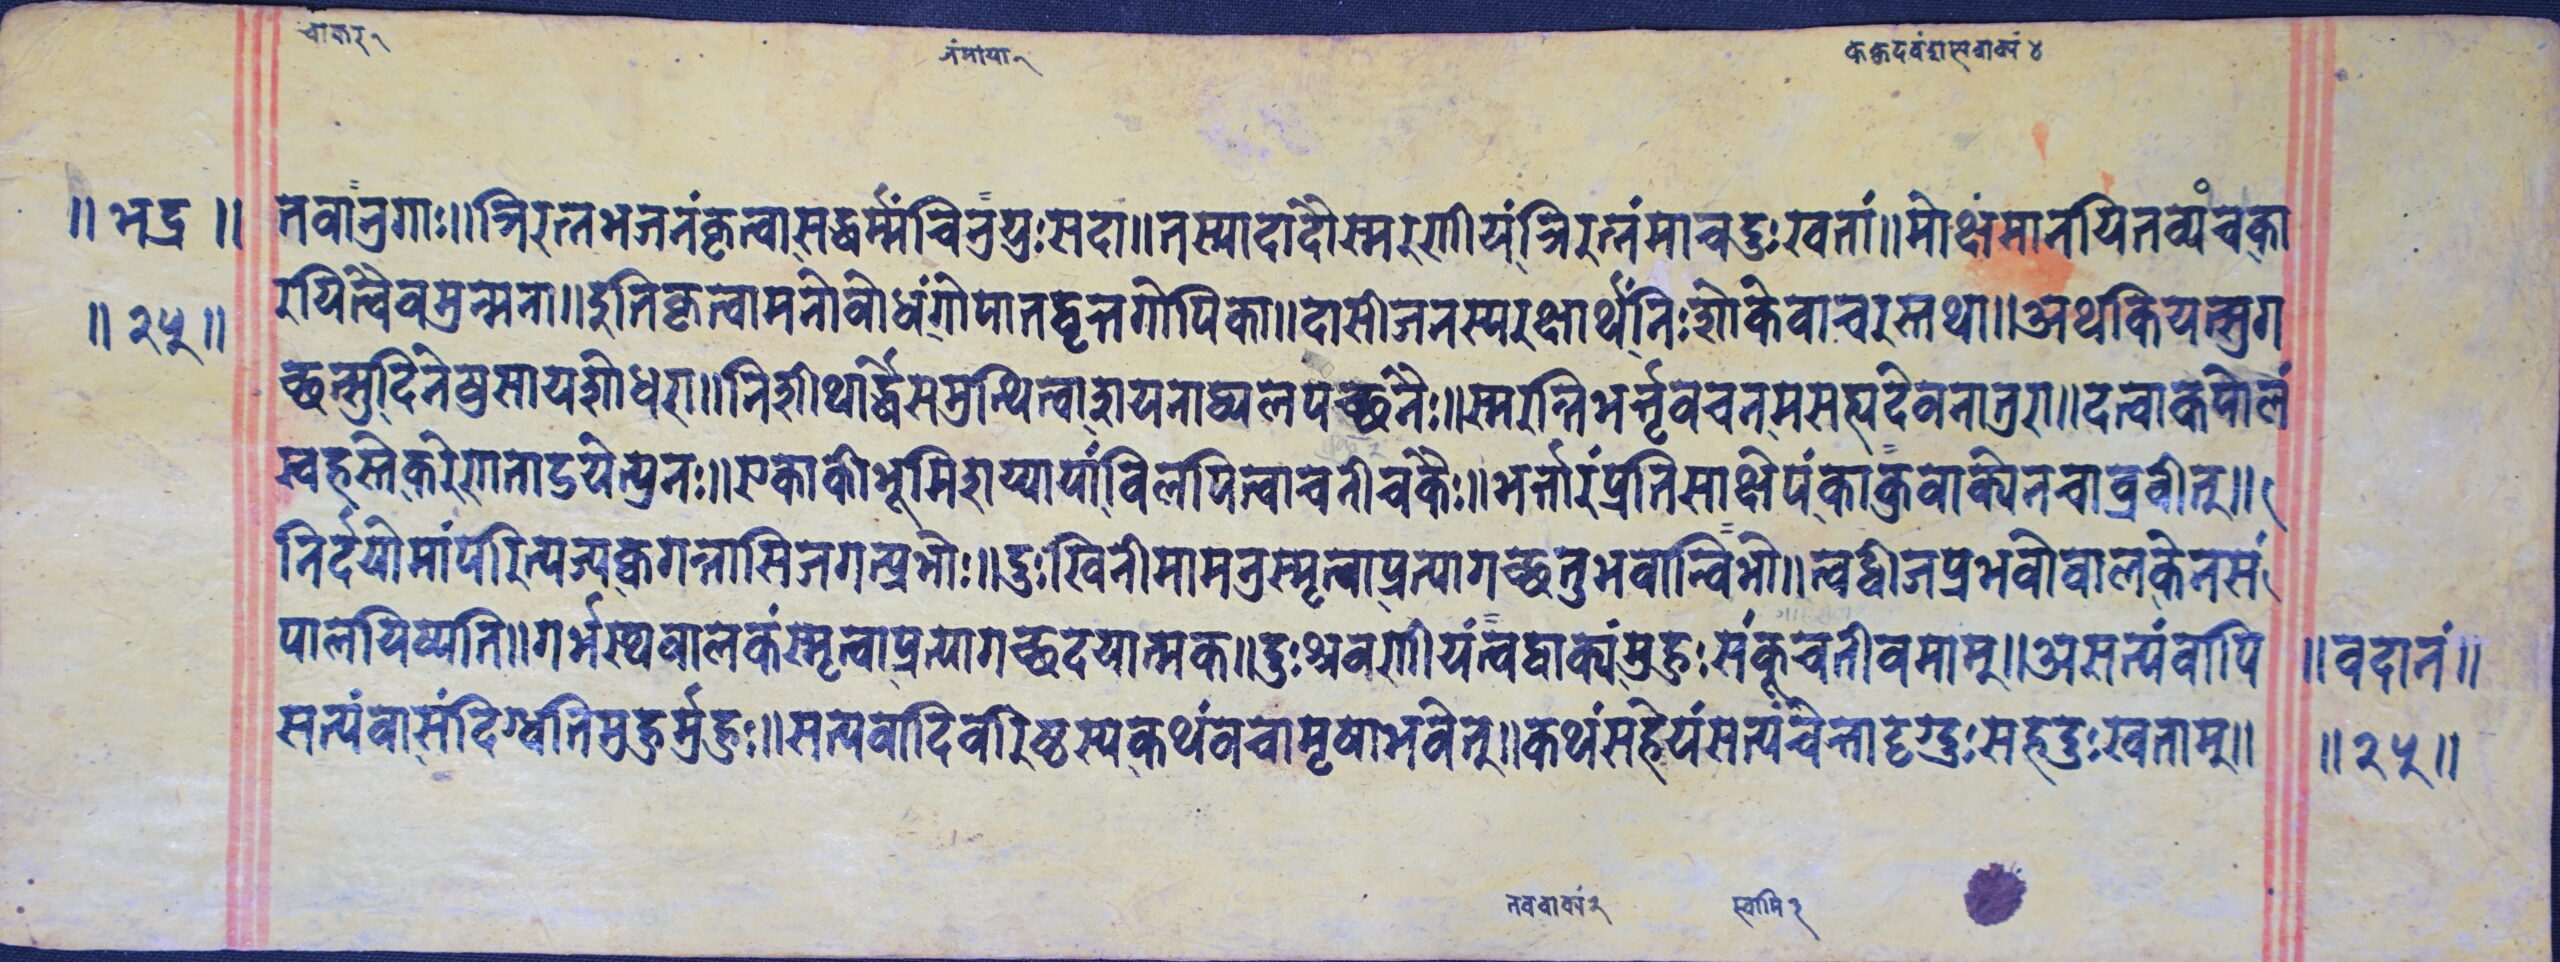 चाकर १
नंमाया १
॥ भद्र ॥
तवानुगाः॥त्रिरत्नभजनंकृत्वासद्धर्म्मंचिनुयुःसदा॥तस्मादादौस्मरणीयंत्रिरत्नंमाचदुःखतां॥मोक्षंमानयितव्यंचका
॥ २५ ॥
रयित्वैवमुन्मना॥इतिकृत्वामनोवोधंगोपानहृत्तगोपिका॥दासीजनस्मरक्षार्थंनिःशोकेवाचरस्तथा॥अथकियत्सुग
च्छत्सुदिनेषुसायशोधरा॥निशीथार्द्धेसमुत्थित्वाशयनाद्व्यलपच्छनैः॥स्मरन्तिभर्त्तृवचनमसह्यदेवनातुरा॥दत्वाकपोलं
स्वहस्तेकरेणाताडयेत्पुनः॥एकाकीभूमिशय्यायांविलपित्वाचतीचकैः॥भर्त्तारंप्रतिसाक्षेपंकाकुवाक्येनचाव्रवीत्॥
निर्दयोमांपरित्यज्यक्वगन्नासिजगत्प्रभोः॥दुःखिनीमामनुस्मृत्वाप्रत्यागच्छतुभवान्विभो॥त्वद्वीजप्रभवोवालकेनसं
पालयिष्यति॥गर्भस्थवालकंस्मृत्वाप्रत्यागच्छदयात्मक॥दुःश्रवणीयंत्वद्वाक्यंमुहुःसंकूचतीवमाम्॥असत्यंवापि
॥वदानं॥
सत्यंवासंदिग्धतिमुहुर्मुहुः॥सत्यवादिवरिष्ठस्यकथंवचोमृषाभवेत्॥कथंसहेयंसत्यंचेत्तादृग्दुःसहदुःखताम्॥
॥२५॥
तववाक्यं२
स्वामि२